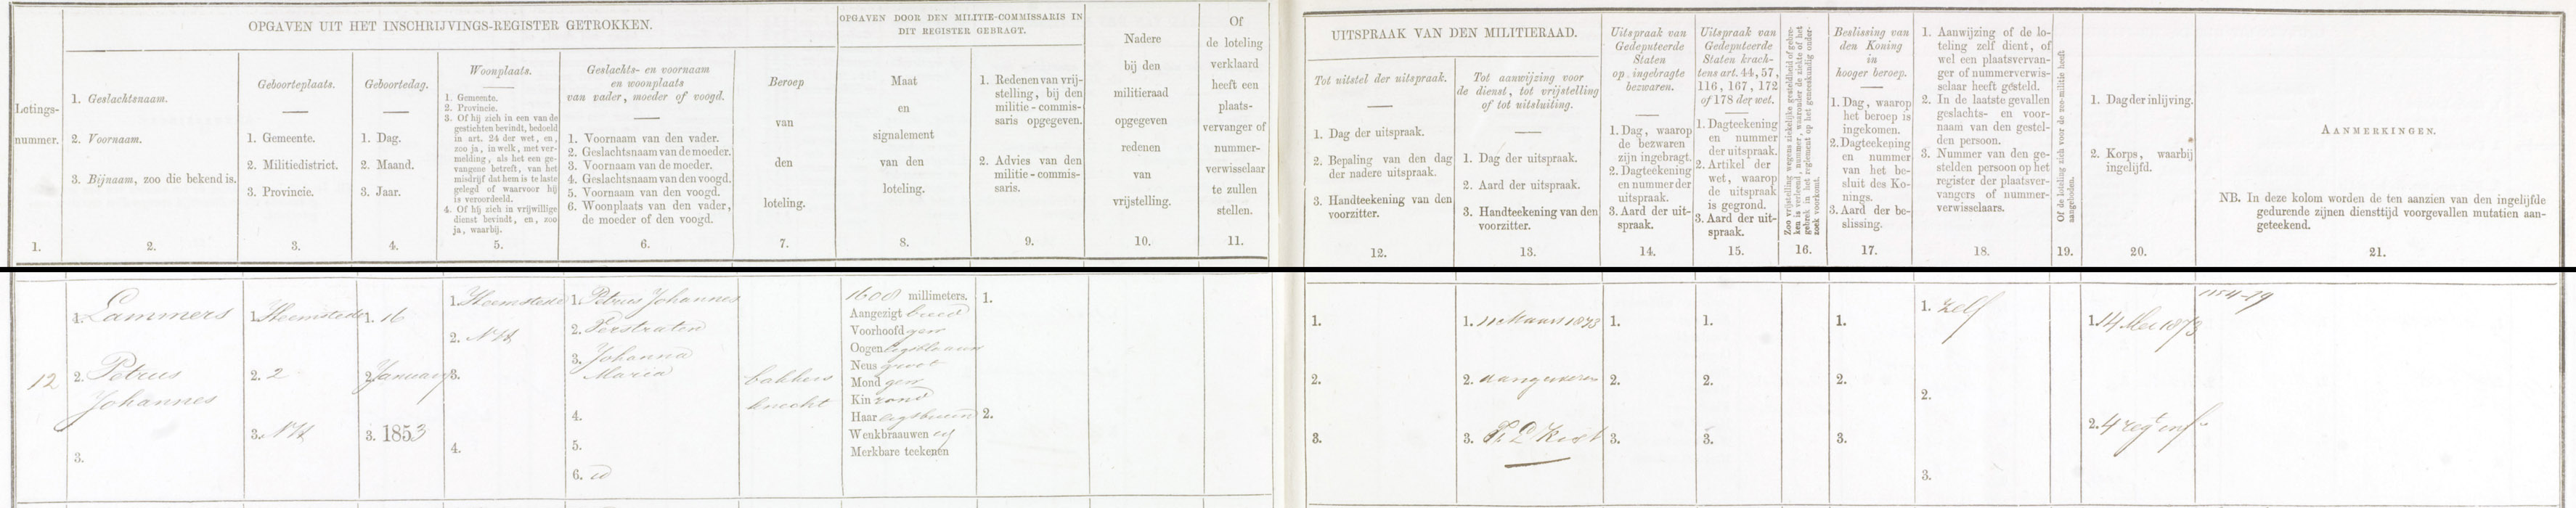 OPGAVEN UIT HET INSCHRIJVINGS-REGISTER GETROKKEN.
Lotings-
nummer.
1.
1. Geslachtsnaam.
2. Voornaam.
3. Bijnaam, zoo die bekend is.
2.
Geboorteplaats.
1. Gemeente.
2. Militiedistrict.
3. Provincie.
3.
Geboortedag.
1. Dag.
2. Maand.
3. Jaar.
4.
Woonplaats.
1. Gemeente.
2. Provincie.
3. Of hij zich in een van de
gestichten bevindt, bedoeld
in art. 24 der wet, en,
zoo ja, in welk, met ver-
melding, als het een ge-
vangene betreft, van het
misdrijf dat hem is te laste
gelegd of waarvoor hij
is veroordeeld.
4. Of hij zich in vrijwillige
dienst bevindt, en, zoo
ja, waarbij.
5.
Geslachts- en voornaam
en woonplaats
van vader, moeder of voogd.
1. Voornaam van den vader.
2. Geslachtsnaam van de moeder.
3. Voornaam van de moeder.
4. Geslachtsnaam van den voogd.
5. Voornaam van den voogd.
6. Woonplaats van den vader,
de moeder of den voogd.
6.
Beroep
van
den
loteling.
7.
OPGAVEN DOOR DEN MILITIE-COMMISSARIS IN
DIT REGISTER GEBRAGT.
Maat
en
signalement
van den
loteling.
8.
1. Redenen van vrij-
stelling, bij den
militie-commis-
saris opgegeven.
2. Advies van den
militie-commis-
saris.
9.
Nadere
bij den
militieraad
opgegeven
redenen
van
vrijstelling.
10.
Of
de loteling
verklaard
heeft een
plaats-
vervanger of
nummer-
verwisselaar
te zullen
stellen.
11.
UITSPRAAK VAN DEN MILITIERAAD.
Tot uitstel der uitspraak.
1. Dag der uitspraak.
2. Bepaling van den dag
der nadere uitspraak.
3. Handteekening van den
voorzitter.
12.
Tot aanwijzing voor
de dienst, tot vrijstelling
of tot uitsluiting.
1. Dag der uitspraak.
2. Aard der uitspraak.
3. Handteekening van den
voorzitter.
13.
Uitspraak van
Gedeputeerde
Staten
op ingebragte
bezwaren.
1. Dag, waarop
de bezwaren
zijn ingebragt.
2. Dagteekening
en nummer der
uitspraak.
3. Aard der uit-
spraak.
14.
Uitspraak van
Gedeputeerde
Staten krach-
tens art. 44, 57,
116, 167, 172
of 178 der wet.
1. Dagteekening
en nummer
der uitspraak.
2. Artikel der
wet, waarop
de uitspraak
is gegrond.
3. Aard der uit-
spraak.
15.
Zoo vrijstelling wegens ziekelijke gesteldheid of gebre-
ken is verleend, nummer, waaronder de ziekte of het
gebrek in het reglement op het geneeskundig onder-
zoek voorkomt.
16.
Beslissing van
den Koning
in
hooger beroep.
1. Dag, waarop
het beroep is
ingekomen.
2. Dagteekening
en nummer
van het be-
sluit des Ko-
nings.
3. Aard der be-
slissing.
17.
1. Aanwijzing of de lo-
teling zelf dient, of
wel een plaatsvervan-
ger of nummerverwis-
selaar heeft gesteld.
2. In de laatste gevallen
geslachts- en voor-
naam van den gestel-
den persoon.
3. Nummer van den ge-
stelden persoon op het
register der plaatsver-
vangers of nummer-
verwisselaars.
18.
Of de loteling zich voor de zee-militie heeft
aangeboden.
19.
1. Dag der inlijving.
2. Korps, waarbij
ingelijfd.
20.
AANMERKINGEN.
NB. In deze kolom worden de ten aanzien van den ingelijfde
gedurende zijnen diensttijd voorgevallen mutatien aan-
geteekend.
21.
12
1. Lammers
2. Petrus
Johannes
3.
1. Heemstede
2. 2
3. NH
1. 16
2. January
3. 1853
1. Heemstede
2. NH
3.
4.
1. Petrus Johannes
2. Verstraten
3. Johanna
Maria
4.
5.
6. id
bakkers
knecht
1608 millimeters.
Aangezigt breed
Voorhoofd gew
Oogen ligtblaauw
Neus groot
Mond gew
Kin rond
Haar ligtbruin
Wenkbraauwen id
Merkbare teekenen
1.
2.
1.
2.
3.
1. 11 Maart 1873
2. aangewezen
3.
1.
2.
3.
1.
2.
3.
1.
2.
3.
1. zelf
2.
3.
1. 14 Mei 1873
2. 4 regt inf